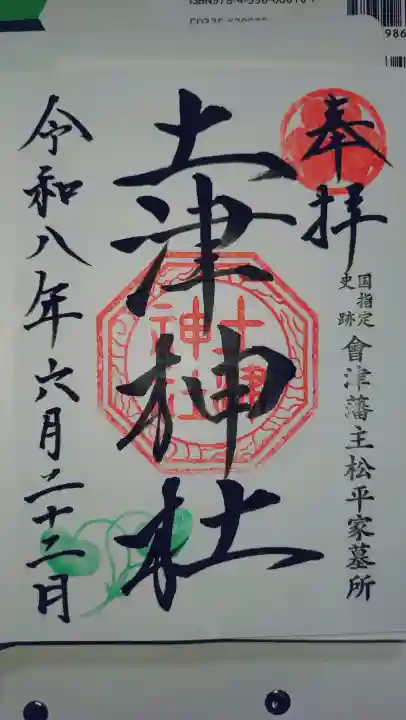 奉拝
国指定
史跡
會津藩主松平家墓所
土津神社
土津
神社
令和八年六月二十二日